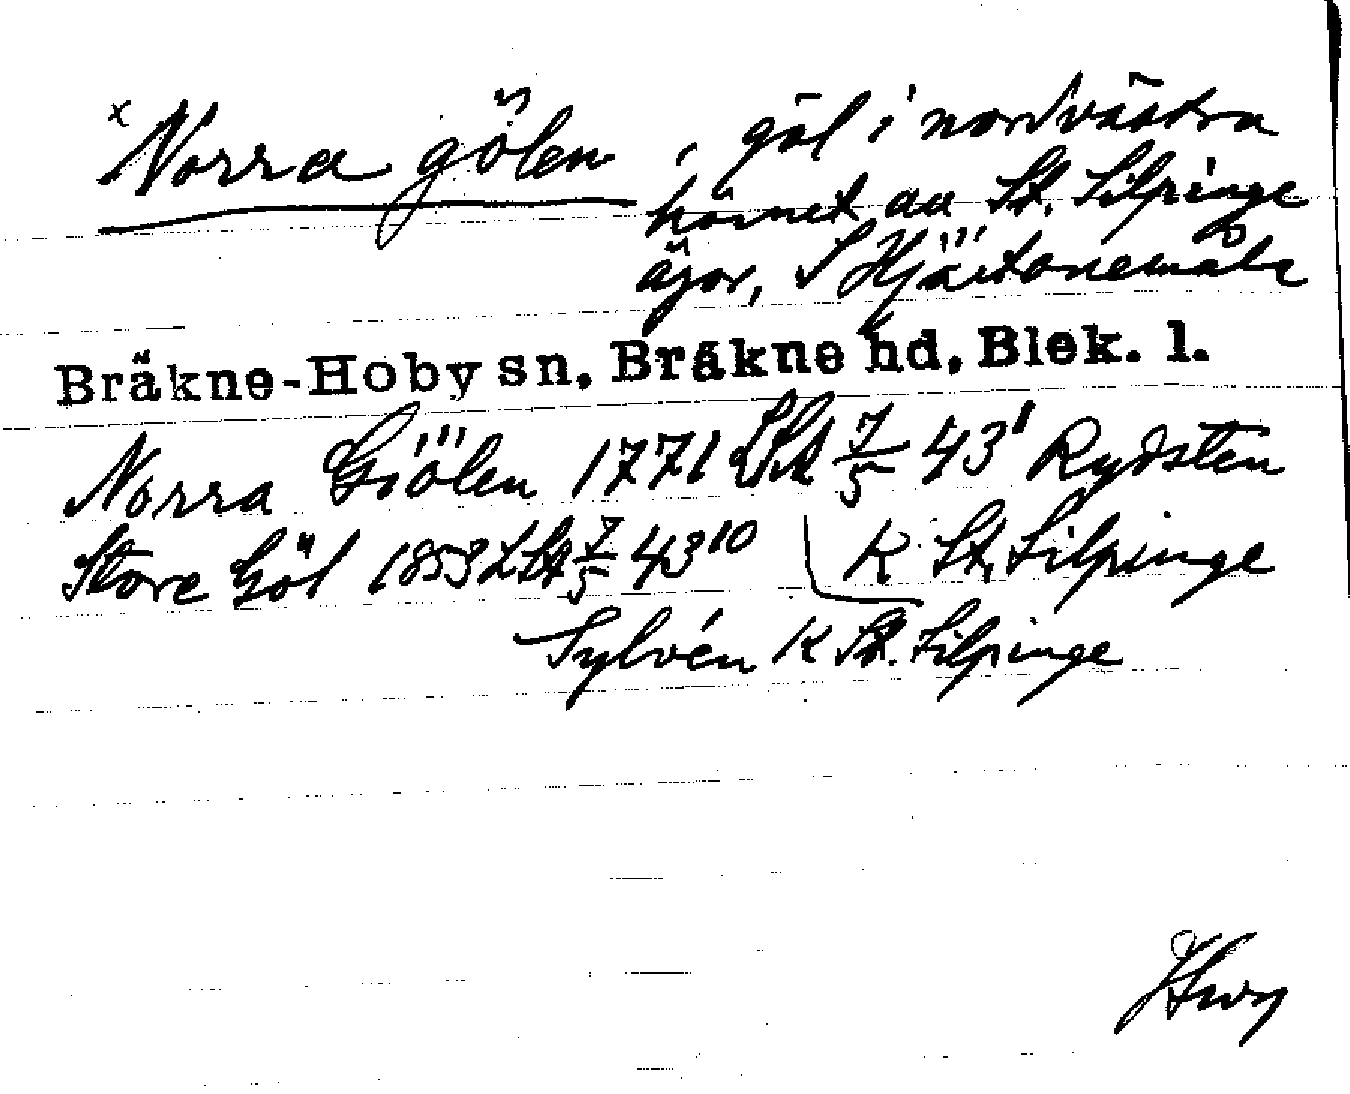 x Norra gölen, göl i nordvästra
hörnet av St. Silpinge
ägor, S Hjärtanemåla
Bräkne-Hoby sn, Bräkne hd, Blek. l.
Norra Giölen 1771 LSA 7/5 43¹ Rydsten
K St. Silpinge
Store Göl 1853 LSA 7/5 43¹⁰
Sylvén K St. Silpinge